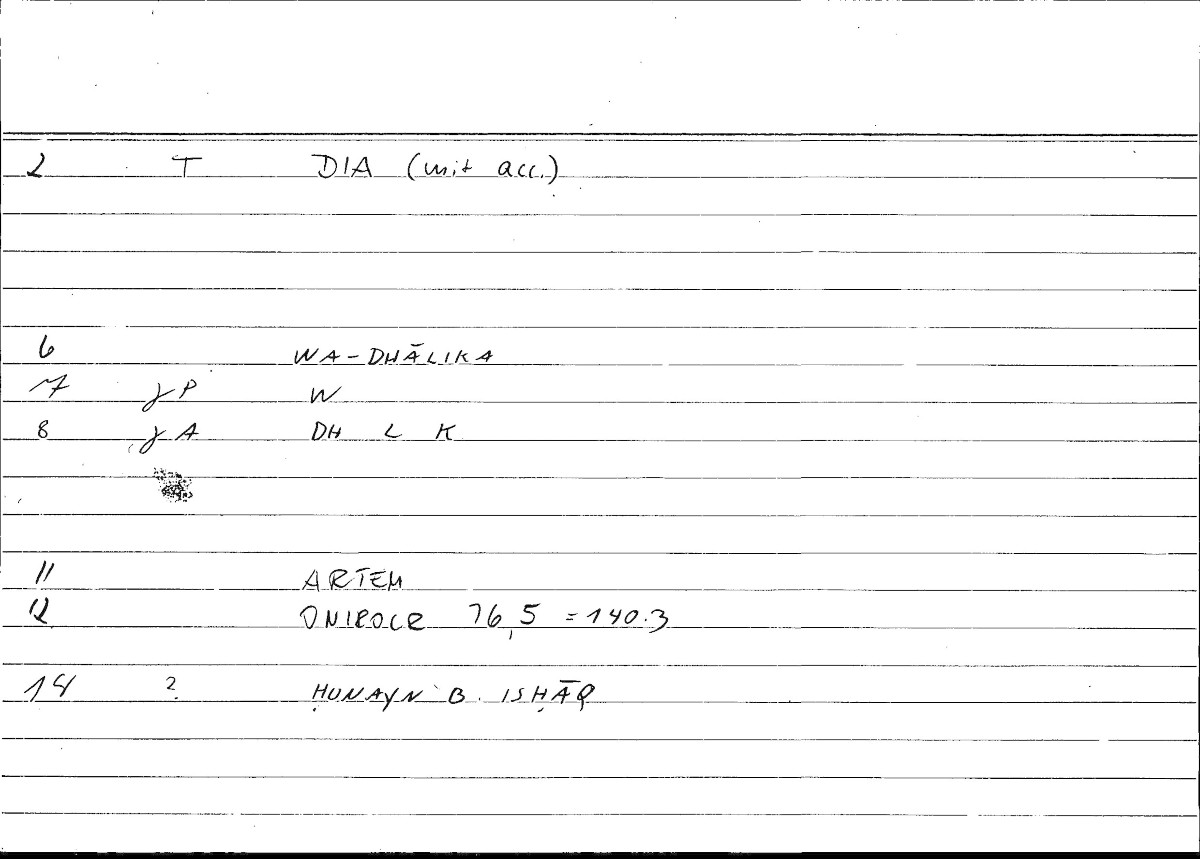 2 T DIA (mit acc.)
6 WA-DHĀLIKA
7 γP W
8 γA DH L K
11 ARTEM
12 ONIROCR 76,5 = 140.3
14 ? ḤUNAYN B. ISḤĀQ